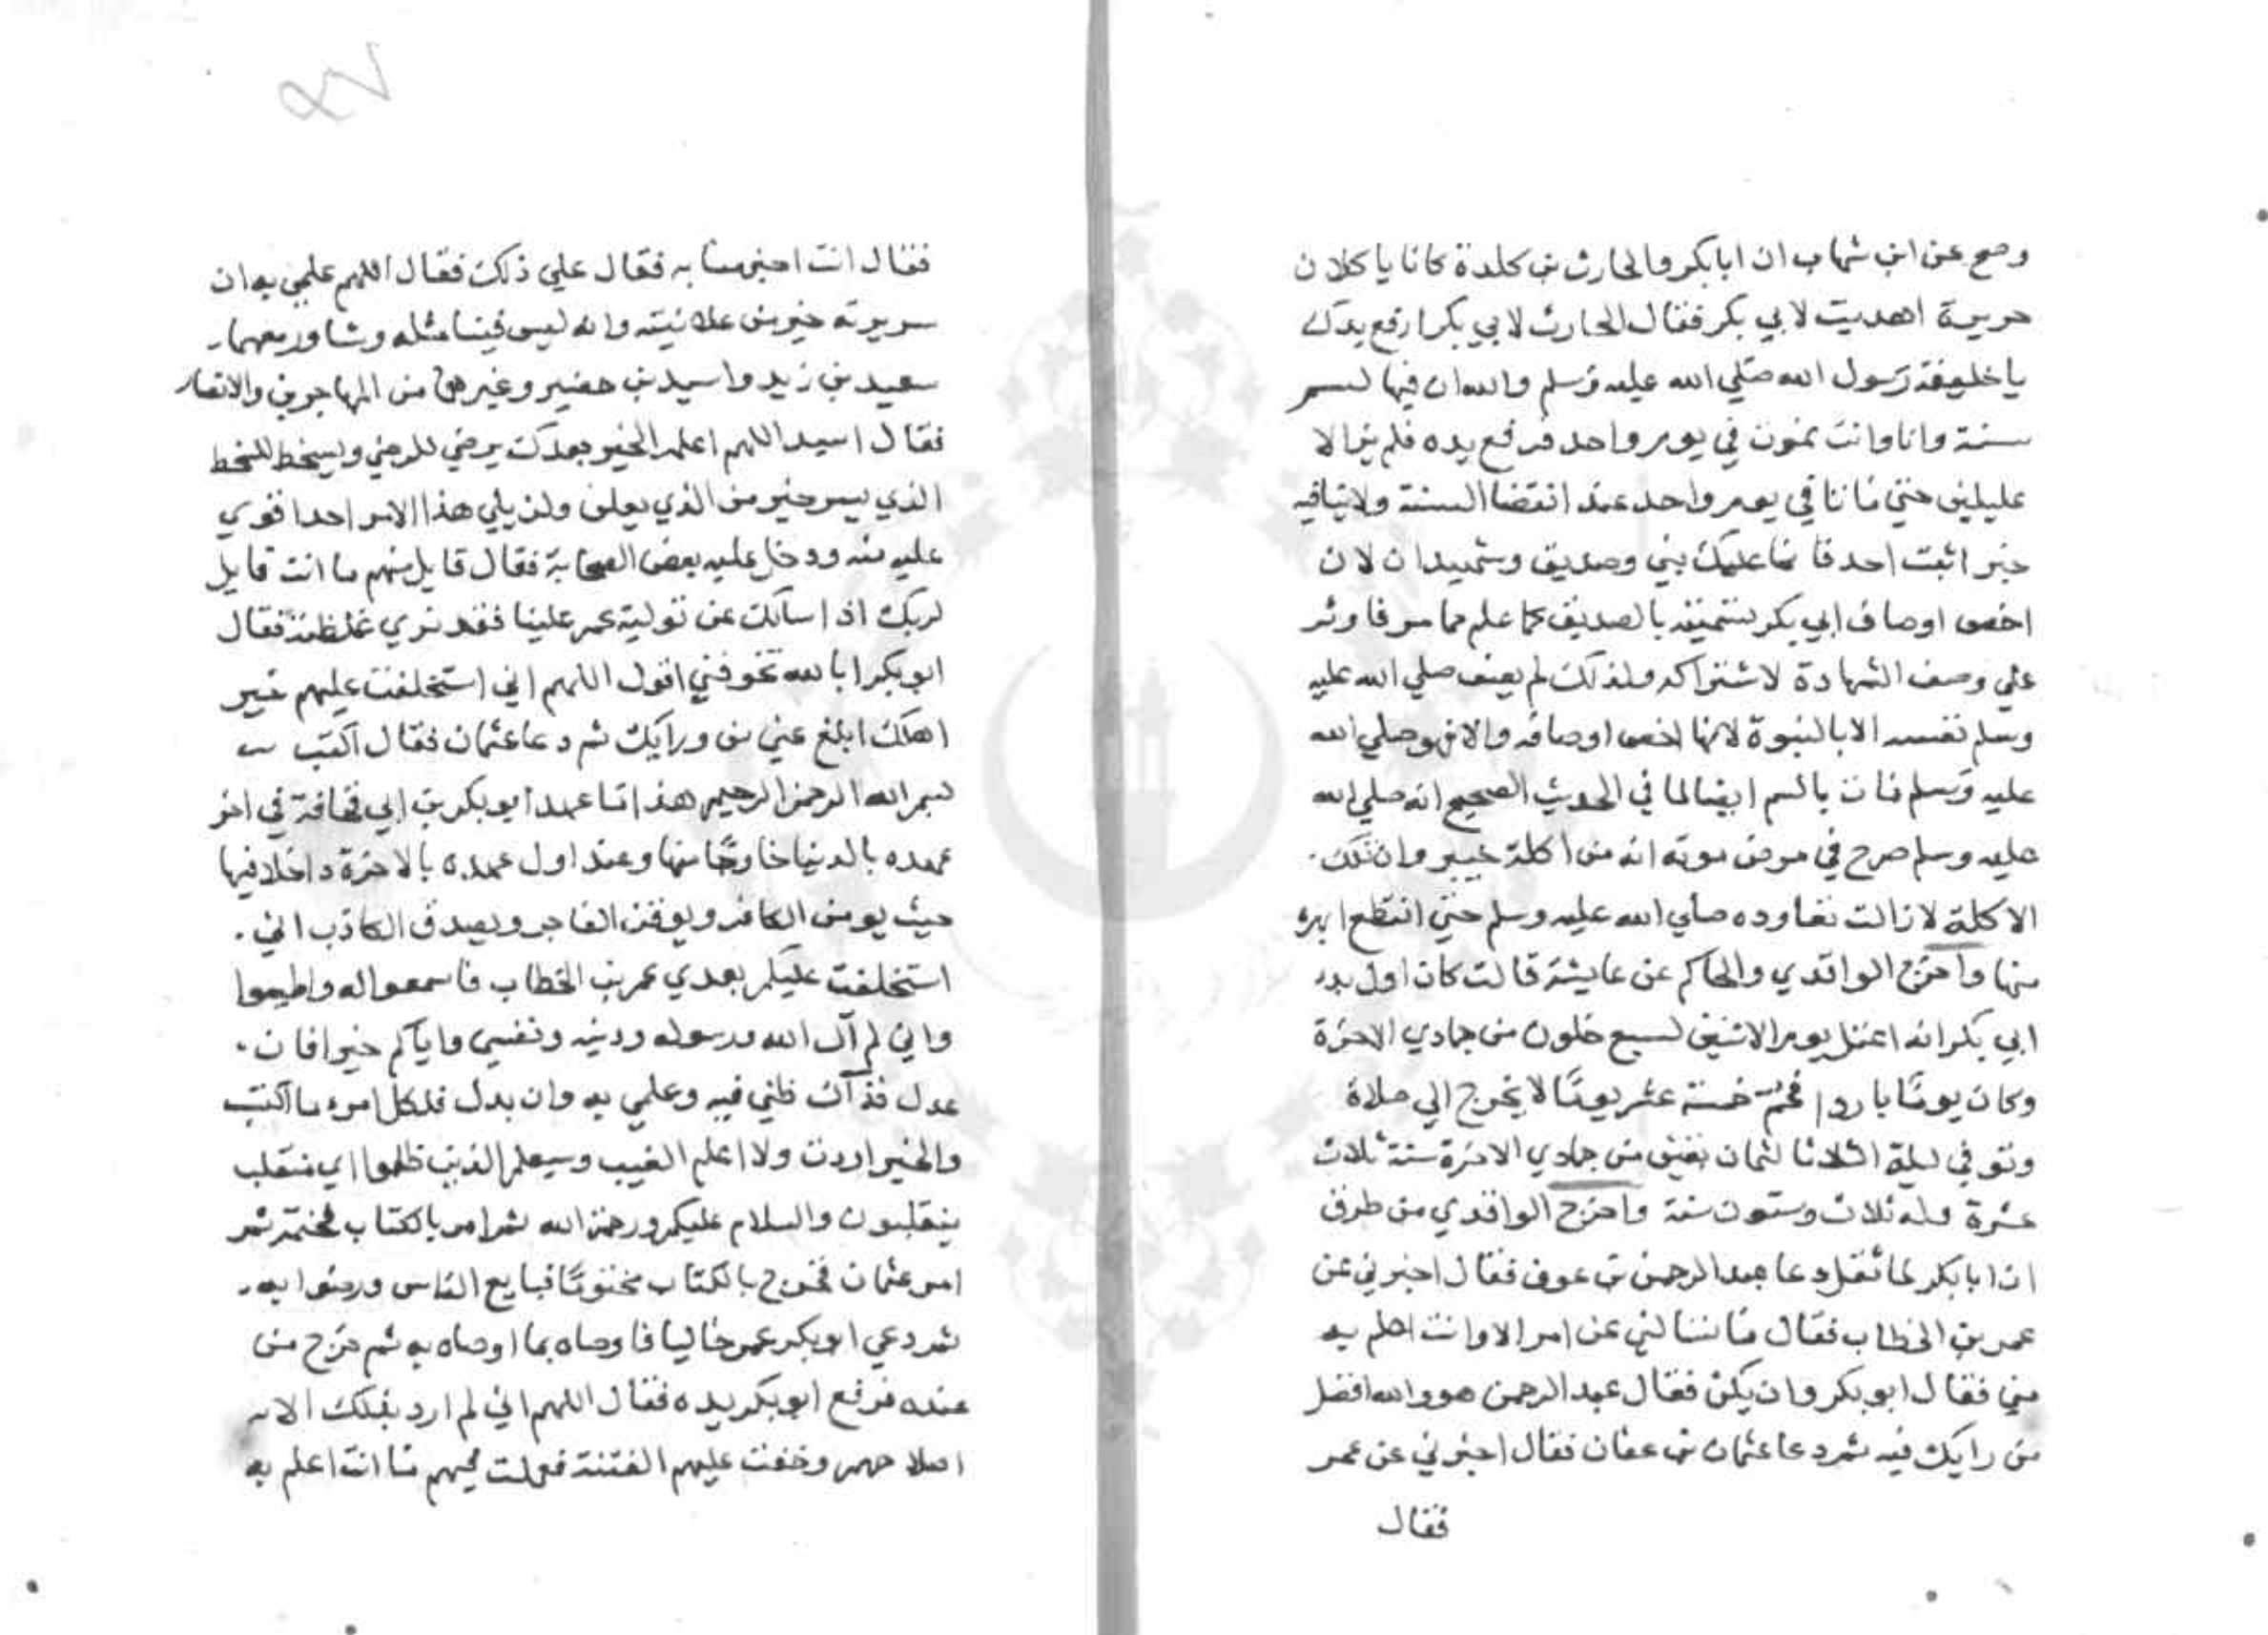 وصح عن ابن شهاب ان ابابكر والحارث بن كلدة كانا ياكلان
حريرة اهديت لابي بكر فقال الحارث لابي بكر ارفع يدك
يا خليفة رسول الله صلي الله عليه وسلم والله ان فيها لسم
سنة وانا وانت نموت في يوم واحد فرفع يده فلم يزالا
عليلين حتي ماتا في يوم واحد عند انقضا السنة ولا ينافيه
خبر اثبت احد فانما عليك نبي وصديق وشهيدان لان
اخص اوصاف ابي بكر تسميته بالصديق كما علم مما مر فاوثر
علي وصف الشهادة لاشتراكه ولذلك لم يصف صلي الله عليه
وسلم نفسه الا بالنبوة لانها اخص اوصافه والا فهو صلي الله
عليه وسلم مات بالسم ايضا لما في الحديث الصحيح انه صلي الله
عليه وسلم صرح في مرض موته انه من اكلة خيبر وان تلك
الاكلة لازالت تعاوده صلي الله عليه وسلم حتي انقطع ابهره
منها واخرج الواقدي والحاكم عن عايشة قالت كان اول بدء
ابي بكر انه اغتسل يوم الاثنين لسبع خلون من جمادي الاخرة
وكان يومًا باردا فحم خمسة عشر يومًا لا يخرج الي صلاة
وتوفي ليلة الثلاثا لثمان بقين من جمادي الاخرة سنة ثلاث
عشرة وله ثلاث وستون سنة واخرج الواقدي من طرق
ان ابابكر لما ثقل دعا عبد الرحمن بن عوف فقال اخبرني عن
عمر بن الخطاب فقال ما تسالني عن امر الا وانت اعلم به
مني فقال ابو بكر وان يكن فقال عبد الرحمن هو والله افضل
من رايك فيه ثم دعا عثمان بن عفان فقال اخبرني عن عمر
فقال
٨٧
فقال انت اخبرنا به فقال علي ذلك فقال اللهم علمي به ان
سريرته خير من علانيته وانه ليس فينا مثله وشاور معهما
سعيد بن زيد واسيد بن حضير وغيرهما من المهاجرين والانصار
فقال اسيد اللهم اعلمه الخير بعدك يرضي للرضي ويسخط للسخط
الذي يسر خير من الذي يعلن ولن يلي هذا الامر احدا قوي
عليه منه ودخل عليه بعض الصحابة فقال قايل منهم ما انت قايل
لربك اذا سالك عن تولية عمر علينا فقد تري غلظته فقال
ابو بكر ابالله تخوفني اقول اللهم اني استخلفت عليهم خير
اهلك ابلغ عني من ورايك ثم دعا عثمان فقال اكتب
بسم الله الرحمن الرحيم هذا ما عهد ابو بكر بن ابي قحافة في اخر
عهده بالدنيا خارجًا منها وعند اول عهده بالاخرة داخلا فيها
حيث يومن الكافر ويوقن الفاجر ويصدق الكاذب اني
استخلفت عليكم بعدي عمر بن الخطاب فاسمعوا له واطيعوا
واني لم آل الله ورسوله ودينه ونفسي واياكم خيرا فان
عدل فذاك ظني فيه وعلمي به وان بدل فلكل امرء ما اكتسب
والخير اردت ولا اعلم الغيب وسيعلم الذين ظلموا اي منقلب
ينقلبون والسلام عليكم ورحمة الله ثم امر بالكتاب فختمه ثم
امر عثمان فخرج بالكتاب مختومًا فبايع الناس ورضوا به
ثم دعي ابو بكر عمر خاليا فاوصاه بما اوصاه به ثم خرج من
عنده فرفع ابو بكر يده فقال اللهم اني لم ارد بذلك الا
اصلاحهم وخفت عليهم الفتنة فعملت فيهم ما انت اعلم به